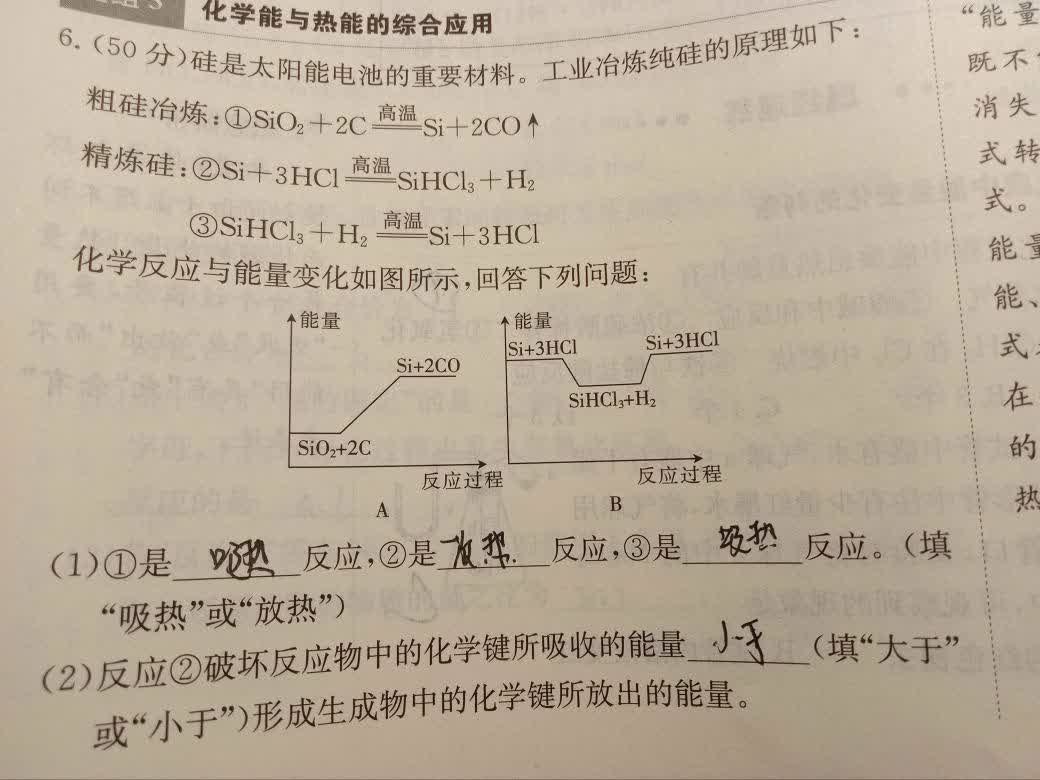 化学能与热能的综合应用
6.(50 分)硅是太阳能电池的重要材料。工业冶炼纯硅的原理如下：
粗硅冶炼：①SiO₂+2C 高温 Si+2CO↑
精炼硅：②Si+3HCl 高温 SiHCl₃+H₂
③SiHCl₃+H₂ 高温 Si+3HCl
化学反应与能量变化如图所示,回答下列问题：
能量
Si+2CO
SiO₂+2C
反应过程
A
能量
Si+3HCl
Si+3HCl
SiHCl₃+H₂
反应过程
B
(1)①是 吸热 反应,②是 放热 反应,③是 吸热 反应。(填
“吸热”或“放热”)
(2)反应②破坏反应物中的化学键所吸收的能量 小于 (填“大于”
或“小于”)形成生成物中的化学键所放出的能量。
“能量
既不
消失
式转
式。
能量
能、
式
在
的
热